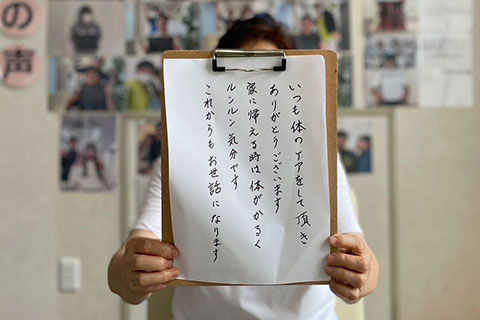 の声
いつも体のケアをして頂き
ありがとうございます
家に帰える時は体がかるく
ルンルン気分です
これからもお世話になります